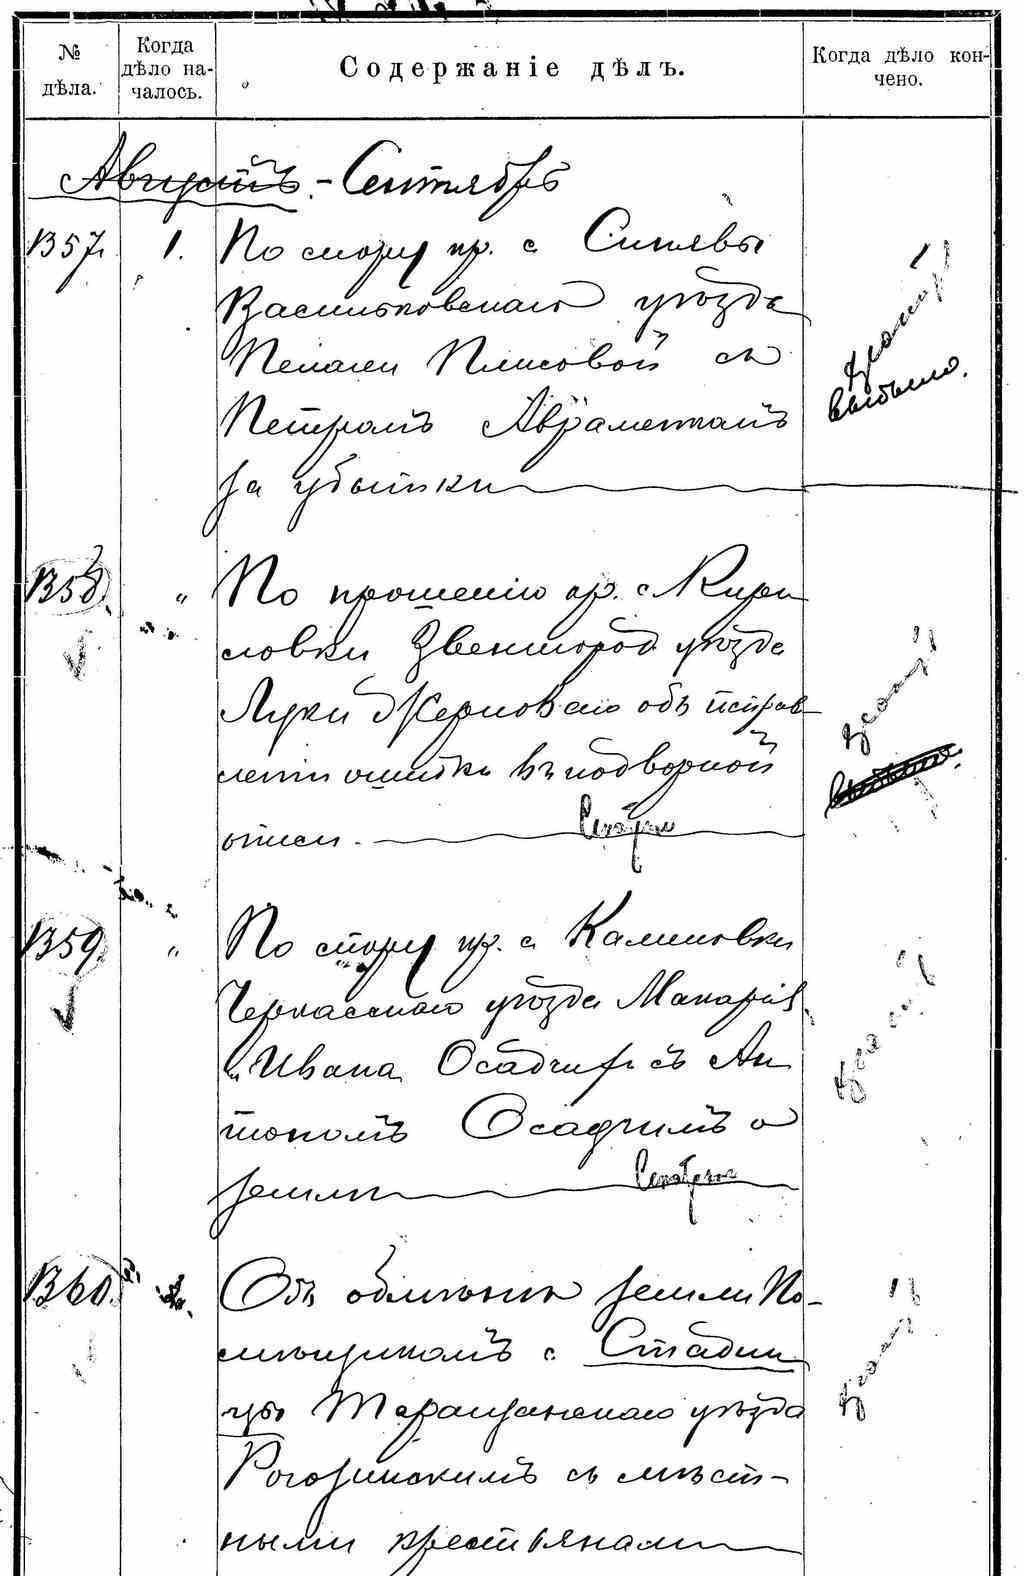 № дѣла.
Когда дѣло на-
чалось.
Содержаніе дѣлъ.
Когда дѣло кон-
чено.
Августъ - Сентябрь
1357. 1. По спору кр. с. Синявы
Васильковскаго уѣзда
Пелагеи Плисовой съ
Петромъ Авраменкомъ
за убытки
выбыло.
1358. " По прошенію кр. с. Кири
ловки Звенигород. уѣзда
Луки Жерноваго объ исправ-
леніи ошибки въ подворной
описи.
выбыло.
1359. " По спору кр. с. Калиновки
Черкасскаго уѣзда Макарія
и Ивана Осадчихъ съ Ан
тономъ Осадчимъ о
землѣ
1360. 2. Объ обмѣнѣ земли По-
мѣщикомъ с. Стадни
цы Таращанскаго уѣзда
Рогозинскимъ съ мѣст-
ными крестьянами